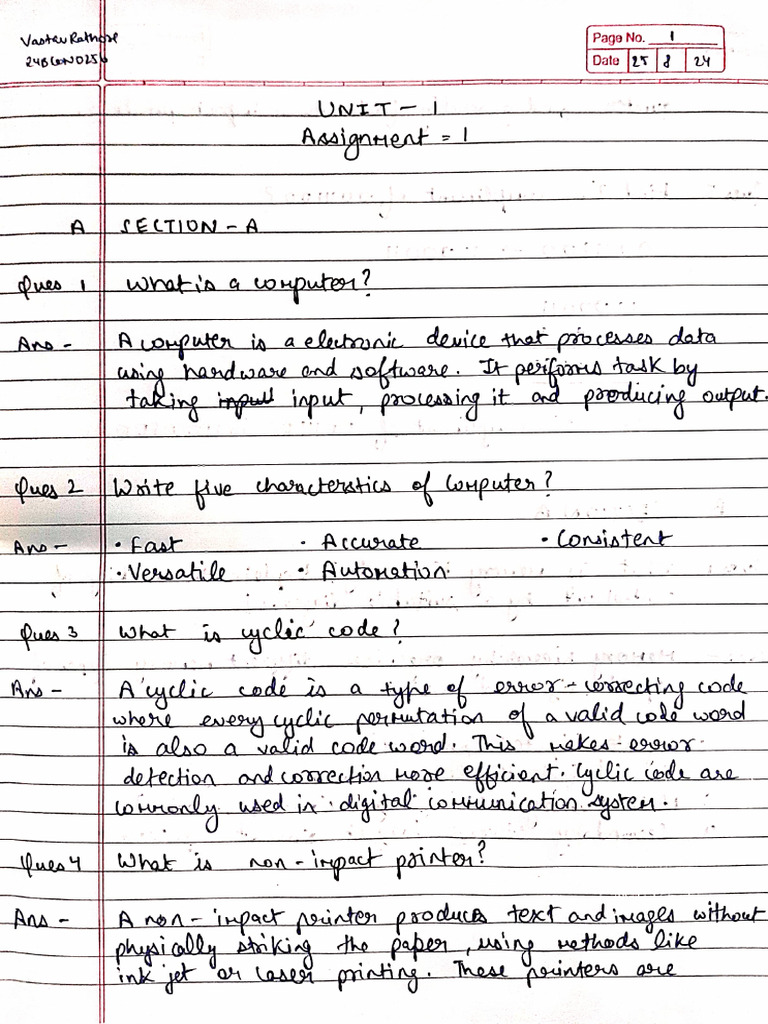 Vastav Rathore
Page No. 1
Date 25 8 24
UNIT - 1
Assignment = 1
A SECTION - A
Ques 1 What is a computer?
Ans - A computer is a electronic device that processes data
using hardware and software. It performs task by
taking input, processing it and producing output.
Ques 2 Write five characterstics of computer?
Ans - • Fast • Accurate • Consistent
• Versatile • Automation
Ques 3 What is cyclic code?
Ans - A cyclic code is a type of error - correcting code
where every cyclic permutation of a valid code word
is also a valid code word. This makes error
detection and correction more efficient. Cyclic code are
commonly used in digital communication system.
Ques 4 What is non - impact printer?
Ans - A non - impact printer produces text and images without
physically striking the paper, using methods like
ink jet or laser printing. These printers are